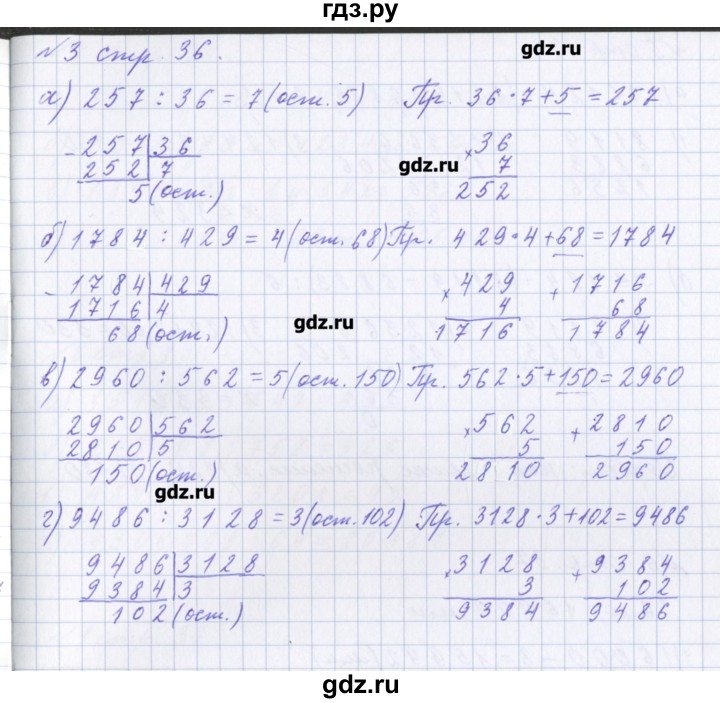 гдз.ру
№3 стр. 36.
gdz.ru
а) 257 : 36 = 7 (ост. 5) Пр. 36 · 7 + 5 = 257
- 257 | 36
252 | 7
5 (ост.)
× 36
7
252
gdz.ru
б) 1784 : 429 = 4 (ост. 68) Пр. 429 · 4 + 68 = 1784
- 1784 | 429
1716 | 4
68 (ост.)
× 429
4
1716
+ 1716
68
1784
gdz.ru
в) 2960 : 562 = 5 (ост. 150) Пр. 562 · 5 + 150 = 2960
2960 | 562
2810 | 5
150 (ост.)
× 562
5
2810
+ 2810
150
2960
gdz.ru
г) 9486 : 3128 = 3 (ост. 102) Пр. 3128 · 3 + 102 = 9486
9486 | 3128
9384 | 3
102 (ост.)
× 3128
3
9384
+ 9384
102
9486
gdz.ru
gdz.ru